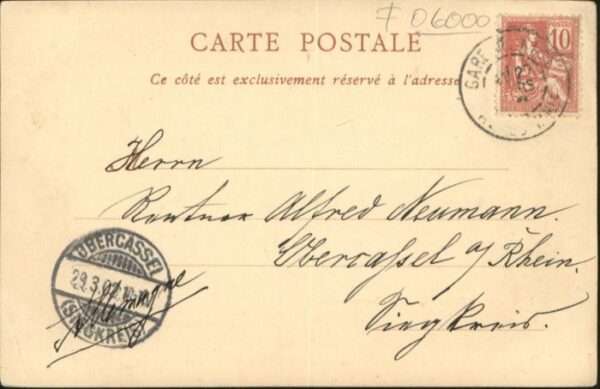 F 06000
CARTE POSTALE
Ce côté est exclusivement réservé à l'adresse
10
GARE
Herrn
Rentner Alfred Neumann.
Obercassel a/Rhein.
Siegkreis.
Allemagne
OBERCASSEL
29.3.02
(SIEGKREIS)